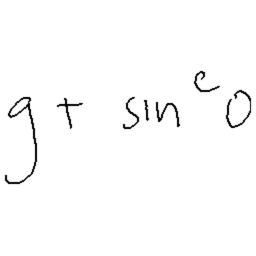 g + sin^c 0